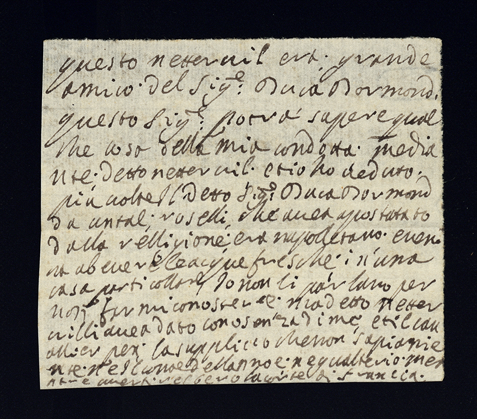 questo netervil era. grande
amico. del Sig.e Duca Dormond.
questo Sig.e potra sapere qual
che cosa della mia condotta. media
nte. detto netervil. et io ho veduto.
più volte il detto Sig.e Duca Dormond
da un tal, roselli, che avea apostatato
dalla relligione, era napoletano. e ven
a bevere le acque fresche. in una
casa particollare, Io non li parlavo per
non farmi conoscere e mio detto neter
villi avea dato conosenza di me et il cav
allier per. la supplico che non sapia nie
nte. ne il ne qualterio.
di francia.